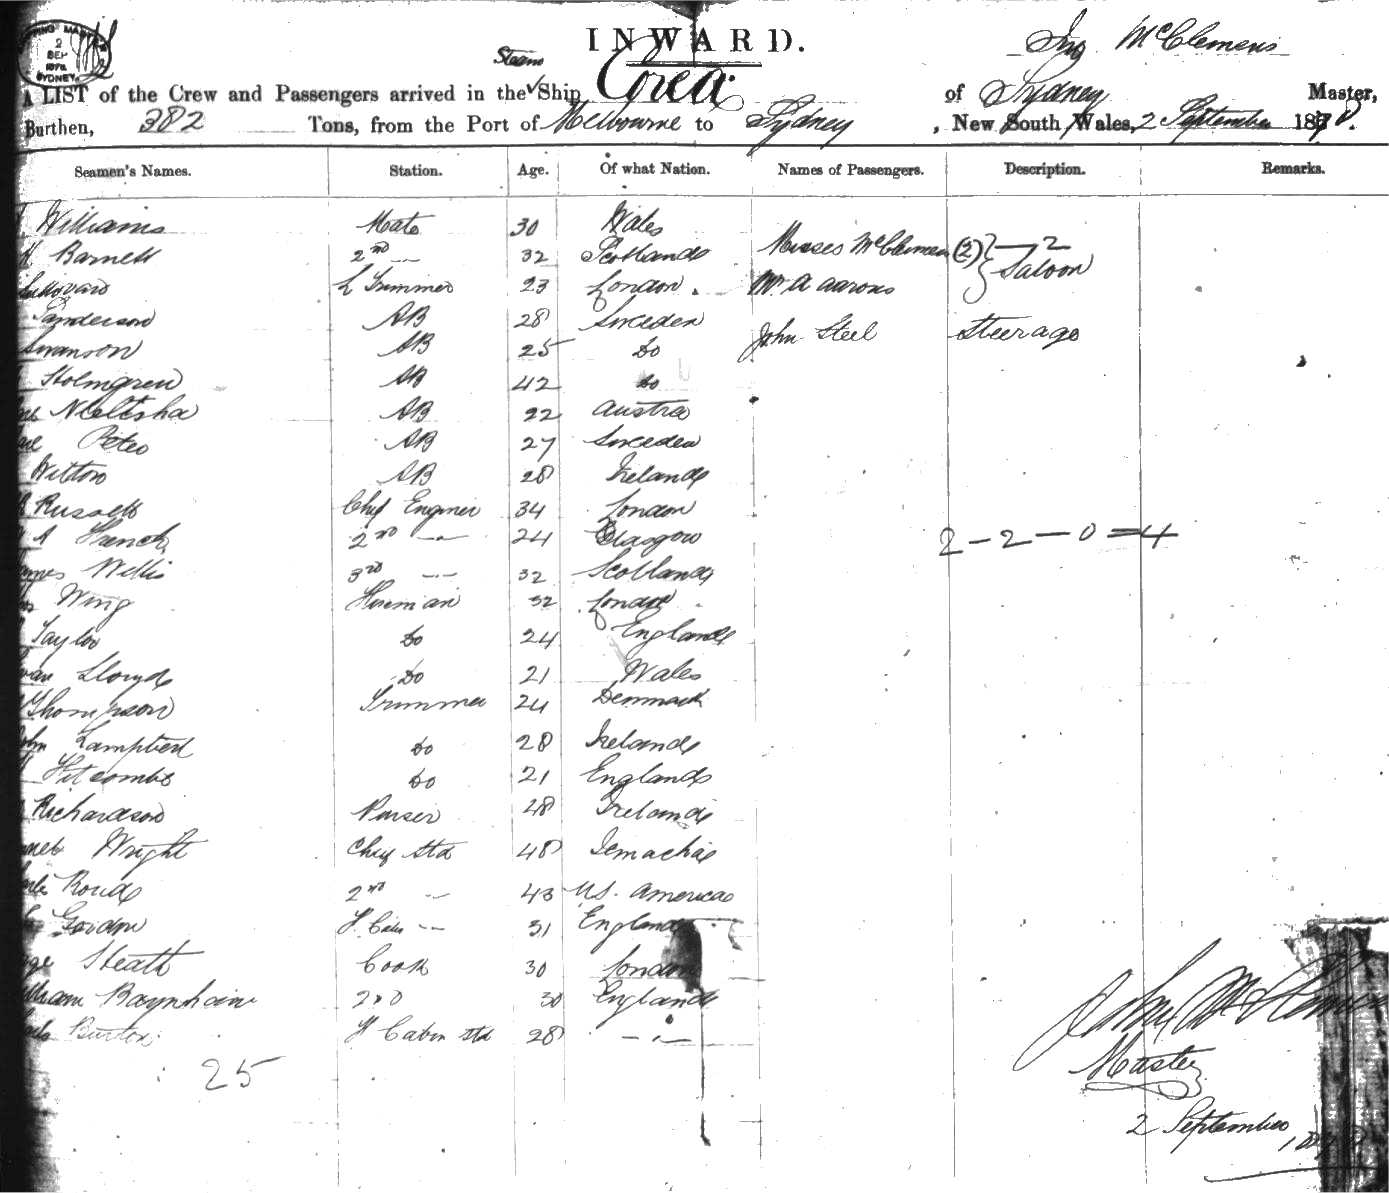 INWARD.
Jno McClemens
SHIPPING MASTER
2
SEP
1878
SYDNEY
Steam
A LIST of the Crew and Passengers arrived in the Ship Corea of Sydney Master,
Burthen, 382 Tons, from the Port of Melbourne to Sydney, New South Wales, 2 September 1878.
Seamen's Names. Station. Age. Of what Nation. Names of Passengers. Description. Remarks.
Williams Mate 30 Wales
Barnett 2nd -- 32 Scotland Misses McClemens (2) } 2 Saloon
L Trimmer 23 London. Mr A Aarons
Sanderson AB 28 Sweden
Swanson AB 25 Do John Steel Steerage
Holmgren AB 42 Do
AB 22 Austra
Peter AB 27 Sweden
Witton AB 28 Ireland
Russell Chief Engineer 34 London
A French 2nd -- 24 Glasgow 2-2-0=4
Willis 3rd -- 32 Scotland
Wing Fireman 32 London
Taylor Do 24 England
Lloyd Do 21 Wales
Thompson Trimmer 24 Denmark
John Lampbert Do 28 Ireland
Do 21 England
Richardson Purser 28 Ireland
Wright Chief Std 48 Jamachia
Roud 2nd -- 43 U.S. America
Gordon F Cabin -- 31 England
Heath Cook 30 London
William Baynham 2nd 30 England
Burton F Cabin Std 28 -- " --
25
John McClemens
Master
2 September